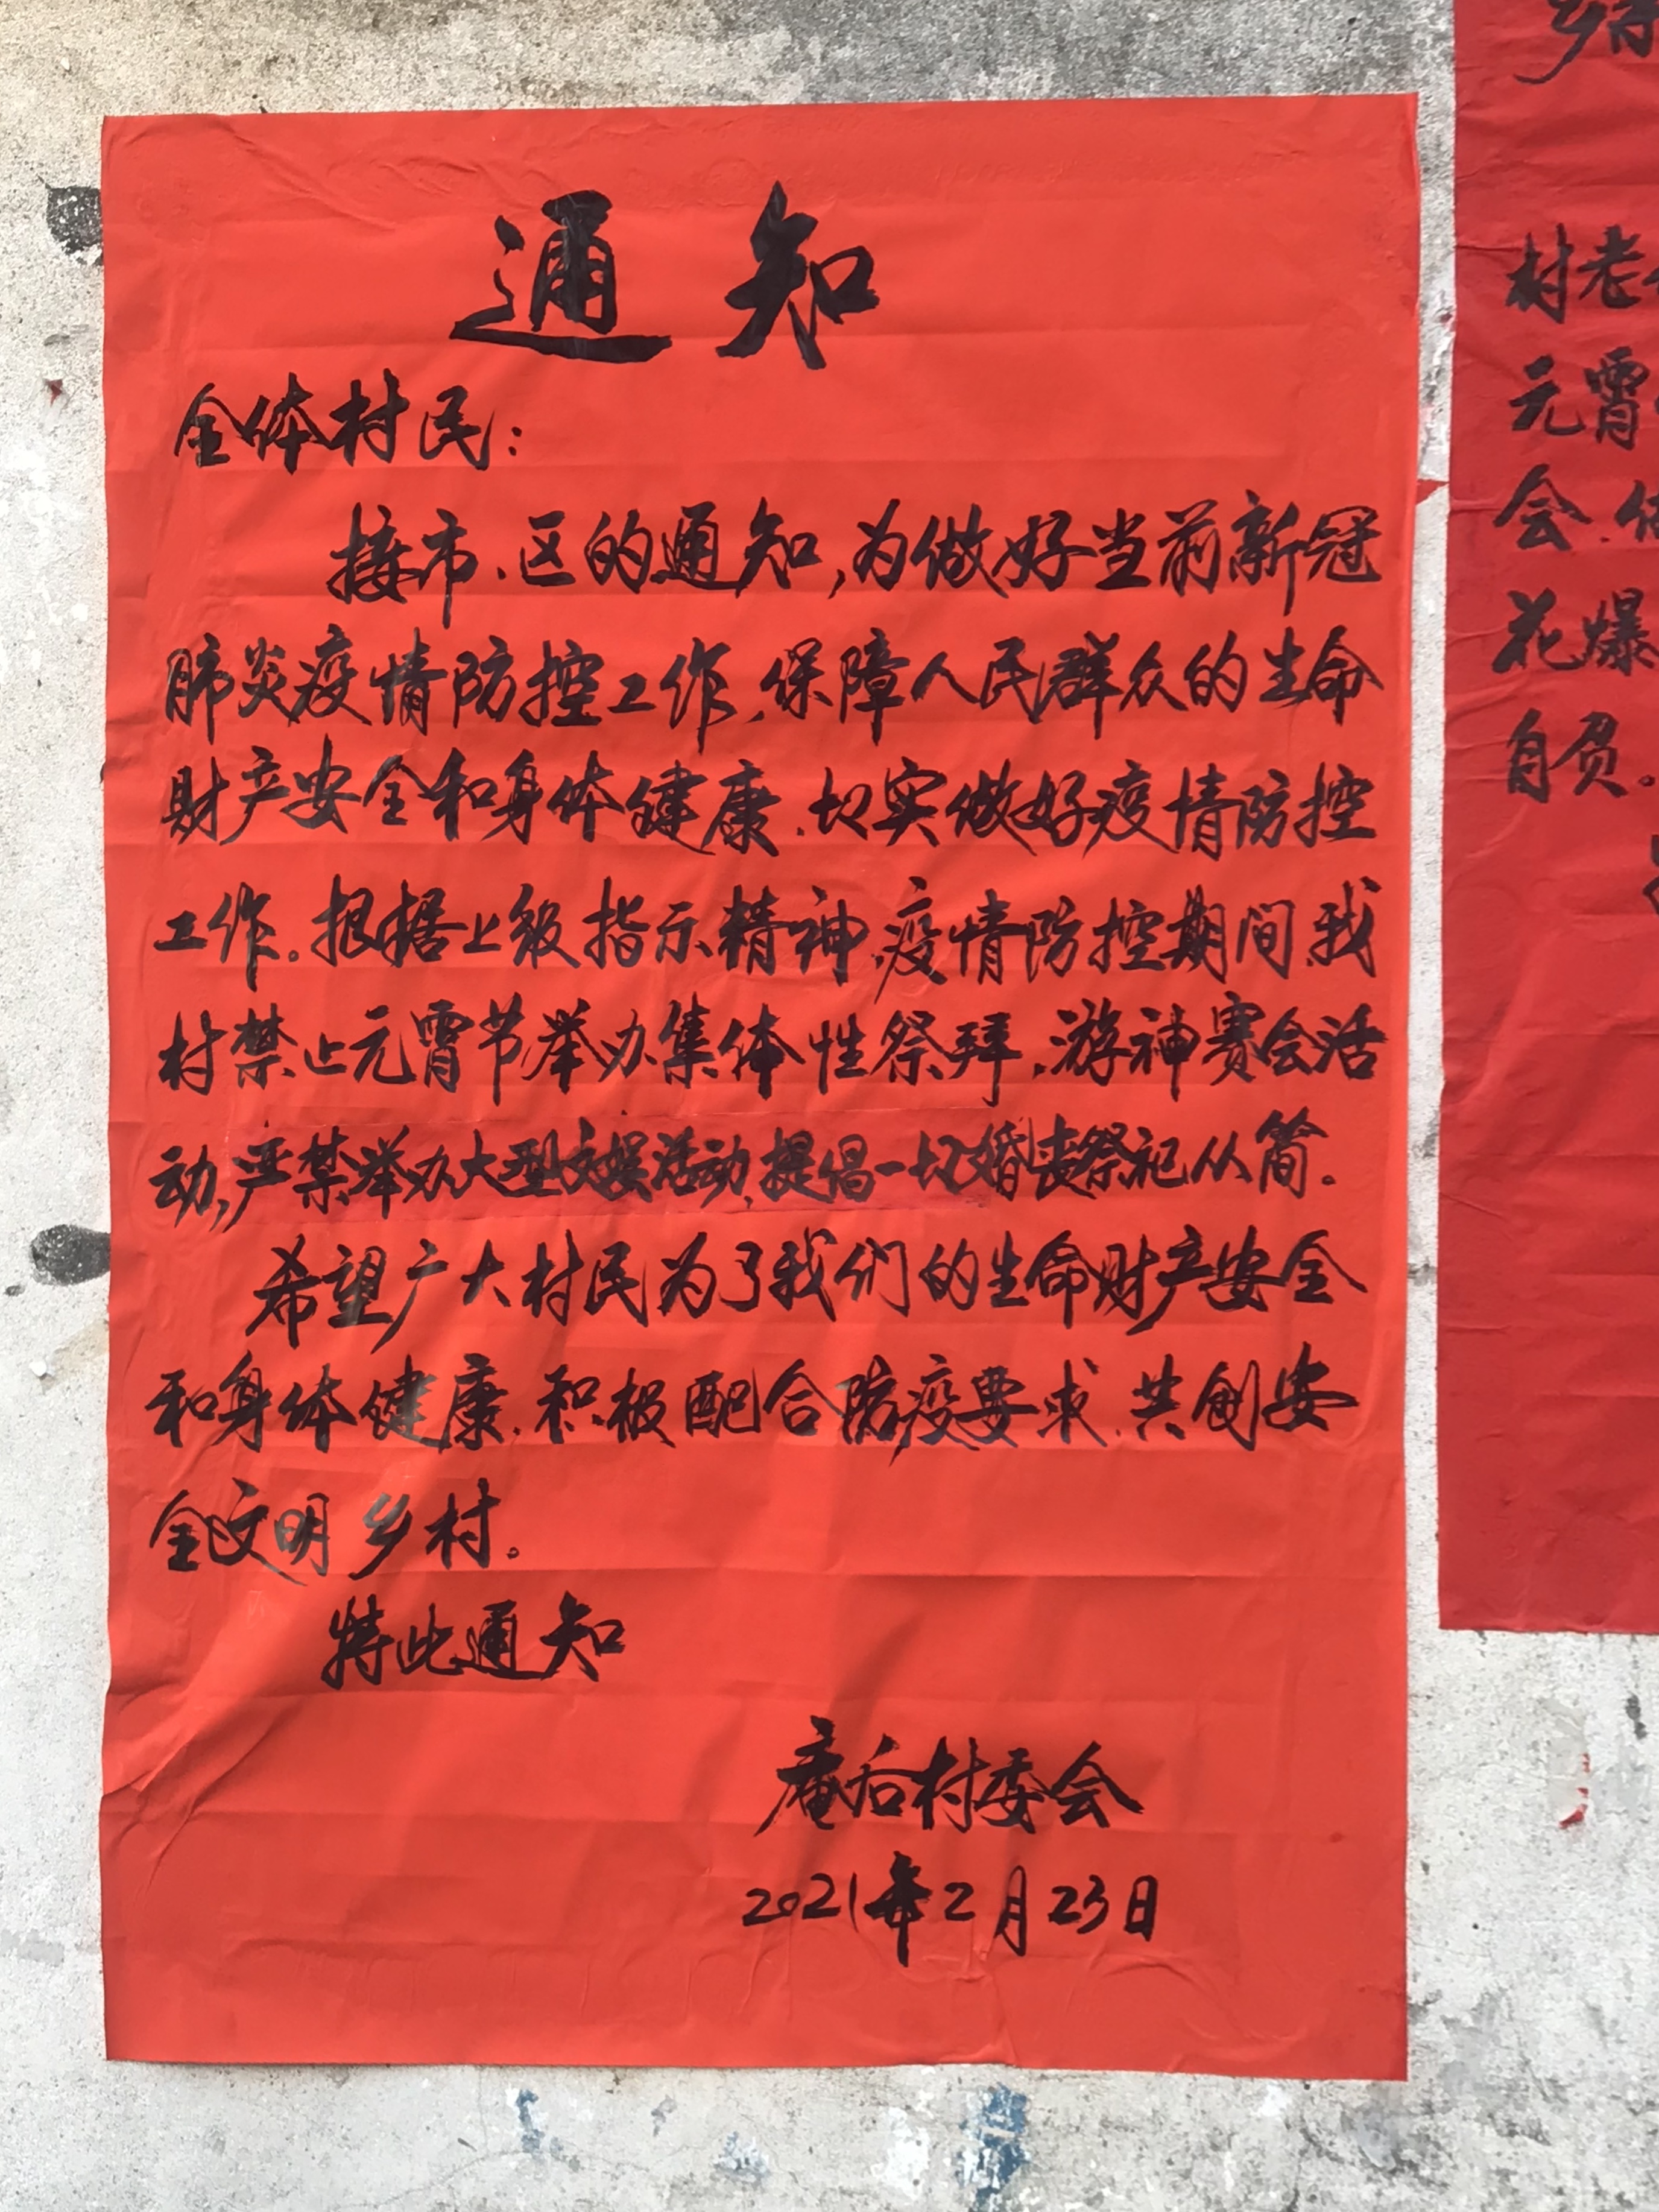 通知
全体村民：
接市、区的通知，为做好当前新冠
肺炎疫情防控工作，保障人民群众的生命
财产安全和身体健康，切实做好疫情防控
工作。根据上级指示精神，疫情防控期间，我
村禁止元宵节举办集体性祭拜、游神赛会活
动，严禁举办大型文娱活动，提倡一切婚丧祭祀从简。
希望广大村民为了我们的生命财产安全
和身体健康，积极配合防疫要求，共创安
全文明乡村。
特此通知
庵后村委会
2021年2月23日
乡
村老
元宵
会
花爆
自负。